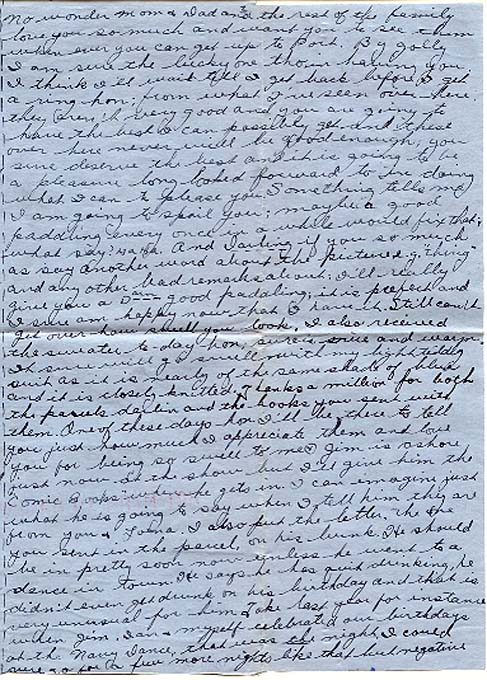 No wonder Mom & Dad and the rest of the family
love you so much and want you to see them
when ever you can get up to Port. By golly
I am sure the lucky one tho in having you
I think I'll wait till I get back before I get
a ring hon; from what I've seen over here
they aren't very good and you are going to
have the best I can possibly get and these
over here never will be good enough; you
sure deserve the best and it is going to be
a pleasure long looked forward to in doing
what I can to please you. Something tells me
I am going to spoil you; maybe a good
paddling every once in a while would fix that;
what say? And Darling if you so much
as say another word about the picture e.g. "thing"
and any other bad remarks about; I'll really
give you a D---- good paddling; it is prefect and
I sure am happy now that I have it. Still can't
get over how swell you look. I also received
the sweater to-day hon, sure is nice and warm.
It sure will go swell with my light teddy
suit as it is nearly of the same shade of blue
and it is closely knitted. Thanks a million for both
the parcels darlin and the books you sent with
them. One of these days hon I'll be there to tell
you just how much I appreciate them and love
you for being so swell to me. Jim is ashore
just now at the show but I'll give him the
comic books when he gets in. I can imagine just
what he is going to say when I tell him they are
from you & I also put the letter, the one
you sent in the parcel, on his bunk. He should
be in pretty soon now unless he went to a
dance in town. He says he has quit drinking, he
didn't even get drunk on his birthday and that is
very unusual for him. Take last year for instance
when Jim, Ian & myself celebrated our birthdays
at th. Navy Dance, that was the night, I could
sure go for a few more nights like that but negative